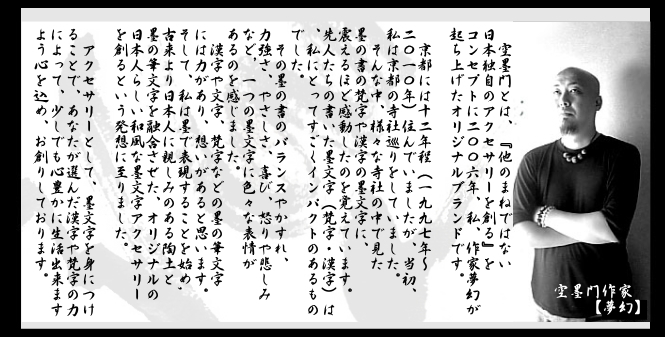 空墨門とは、『他のまねではない
日本独自のアクセサリーを創る』を
コンセプトに二〇〇六年、私、作家夢幻が
起ち上げたオリジナルブランドです。
京都には十二年程（一九九七年～
二〇一〇年）住んでいましたが、当初、
私は京都の寺社巡りをしていました。
そんな中、様々な寺社の中で見た
墨の書の梵字や漢字の墨文字に、
震えるほど感動したのを覚えています。
先人たちの書いた墨文字（梵字・漢字）は
、私にとってすごくインパクトのあるもの
でした。
その墨の書のバランスやかすれ、
力強さ、やさしさ、喜び、怒りや悲しみ
など、一つの墨文字に色々な表情が
あるのを感じました。
漢字や文字、梵字などの墨の筆文字
には力があり、想いがあると思います。
そして、私は墨で表現することを始め、
古来より日本人に親しみのある陶土と
墨の筆文字を融合させた、オリジナルの
日本人らしい和風な墨文字アクセサリー
を創るという発想に至りました。
アクセサリーとして、墨文字を身につけ
ることで、あなたが選んだ漢字や梵字の力
によって、少しでも心豊かに生活出来ます
よう心を込め、お創りしております。
空墨門作家
【夢幻】